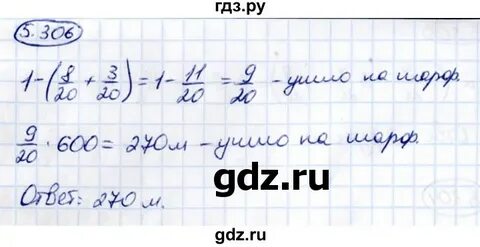 гдз.ру
5.306
1-(8/20 + 3/20) = 1 - 11/20 = 9/20 - ушло на шарф.
9/20 · 600 = 270 м - ушло на шарф.
Ответ: 270 м.
gdz.ru
gdz.ru